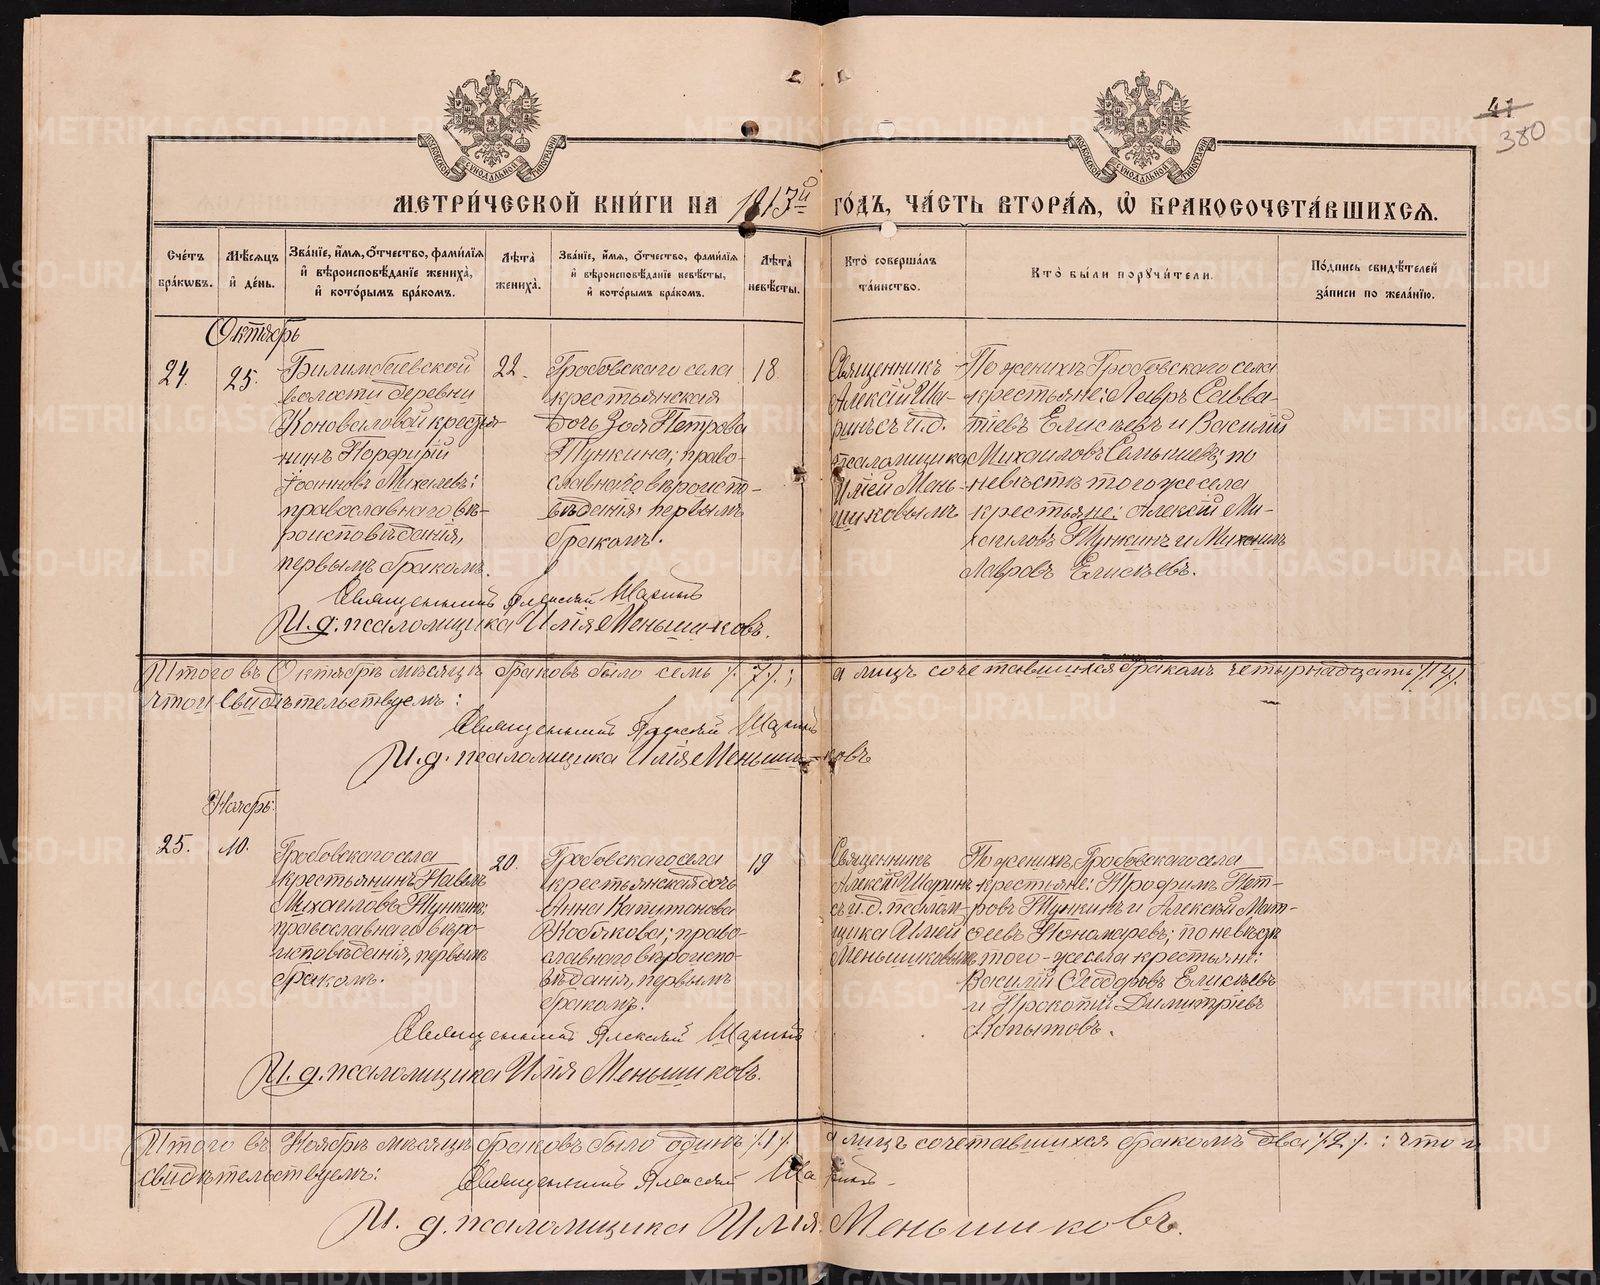 41
380
МЕТРИ́ЧЕСКОЙ КНИ́ГИ НА 1913й ГО́ДЪ, ЧА́СТЬ ВТОРА́Я, Ѽ БРАКОСОЧЕТА́ВШИХСЯ.
Сче́тъ бра́кѡвъ.
Мѣ́сяцъ и҆ де́нь.
Зва́нїе, и҆́мя, о҆́тчество, фами́лїя и҆ вѣроисповѣ́данїе жениха̀, и҆ кото́рымъ бра́комъ.
Лѣ́та жениха̀.
Зва́нїе, и҆́мя, о҆́тчество, фами́лїя и҆ вѣроисповѣ́данїе невѣ́сты, и҆ кото́рымъ бра́комъ.
Лѣ́та невѣ́сты.
Кто̀ соверша́лъ та́инство.
Кто̀ бы́ли порꙋчи́тели.
По́дпись свидѣ́телей за́писи по жела́нїю.
Октябрь
24.
25.
Билимбаевской
волости деревни
Коноваловой крестья-
нинъ Порфирій
Іоанновъ Михалевъ;
православнаго вѣ-
роисповѣданія,
первымъ бракомъ.
22.
Гробовскаго села
крестьянская
дочь Зоя Петрова
Тункина; право-
славнаго вѣроиспо-
вѣданія первымъ
бракомъ.
18.
Священникъ
Алексій Ша-
ринъ съ и.д.
псаломщика
Иліей Мень-
шиковымъ
По женихѣ Гробовскаго села
крестьяне: Лавръ Савва-
тіевъ Елисѣевъ и Василій
Михаиловъ Семышевъ; по
невѣстѣ того же села
крестьяне: Алексій Ми-
хаиловъ Тункинъ и Михаилъ
Лавровъ Елисѣевъ.
Священникъ Алексій Шаринъ
И.д. псаломщика Илія Меньшиковъ.
Итого въ Октябрѣ мѣсяцѣ браковъ было семь /7/; а лицъ сочетавшихся бракомъ четырнадцать /14/.
что и свидѣтельствуемъ:
Священникъ Алексій Шаринъ
И.д. псаломщика Илія Меньшиковъ
Ноябрь
25.
10.
Гробовскаго села
крестьянинъ Павелъ
Михаиловъ Тункинъ;
православнаго вѣро-
исповѣданія, первымъ
бракомъ.
20.
Гробовскаго села
крестьянская дочь
Анна Капитонова
Кобякова; право-
славнаго вѣроиспо-
вѣданія, первымъ
бракомъ.
19
Священникъ
Алексій Шаринъ
съ и.д. псалом-
щика Иліей
Меньшиковымъ
По женихѣ Гробовскаго села
крестьяне: Трофимъ Пет-
ровъ Тункинъ и Алексѣй Мат-
ѳеевъ Пономаревъ; по невѣстѣ
того-же села крестьяне:
Василій Ѳеодоровъ Елисѣевъ
и Прокопій Димитріевъ
Копытовъ.
Священникъ Алексій Шаринъ
И.д. псаломщика Илія Меньшиковъ.
Итого въ Ноябрѣ мѣсяцѣ браковъ было одинъ /1/. а лицъ сочетавшихся бракомъ два /2/.: что и
свидѣтельствуемъ:
Священникъ Алексій Шаринъ
И. д. псаломщика Илія Меньшиковъ.
METRIKI.GASO-URAL.RU